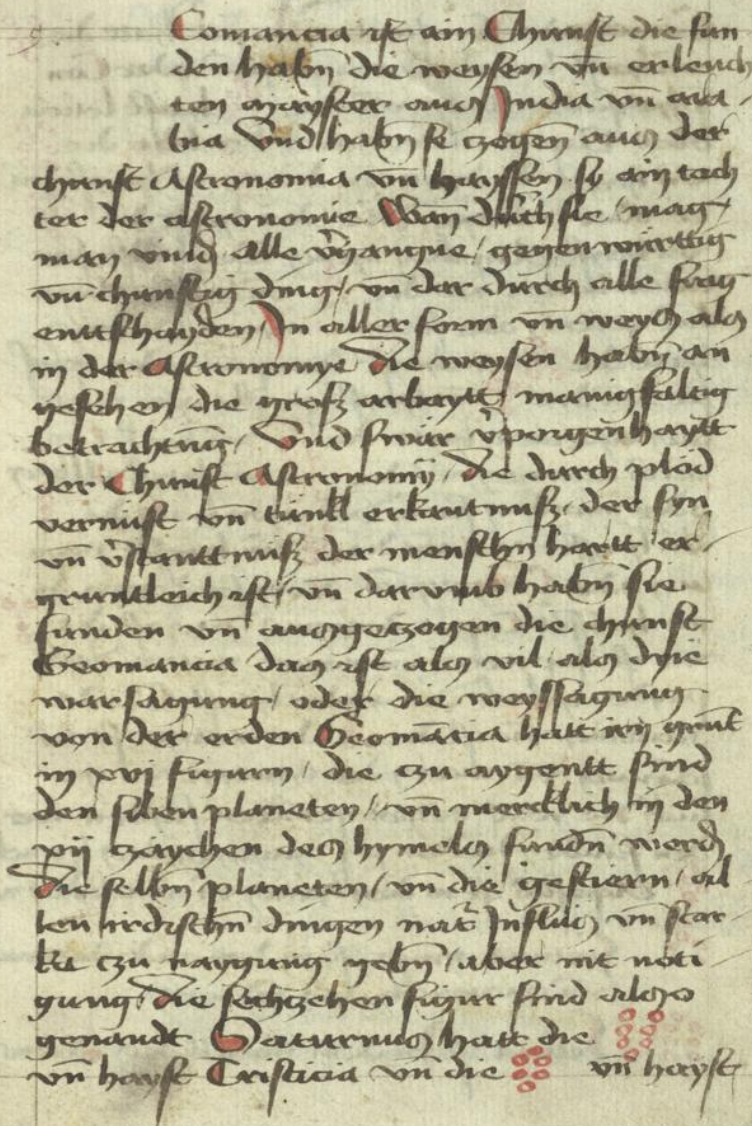 Eomancia ist ain Chunst die fun
den habn̄ die weysen vn̄ erleuch
ten mayster aus India vn̄ ara
bia Vnd habn̄ se czogen aus der
chunst Astronomia vn̄ hayssen sy ain toch
ter der astronomie Wan̄ durch sie mag
man vindn̄ alle v̄gangne / gegenwürttig
vn̄ chunftig ding / vn̄ dar durch alle frag
enttschayden / In aller form vn̄ weys als
in der Astronomye Die weysen habn̄ an
gesehen die gross arbaytt manigfaltig
betrachtūg / Vnd swär v̄porgenhaytt
der Chunst Astronomy / die durch plöd
vernūft vn̄ tunkl erkantnuss / der syn
vn̄ v̄stanttnuss der menschn̄ hartt er
gruntleich ist / vn̄ darvmb habn̄ sie
funden vn̄ ausgeczogen die chunst
Geomancia das ist als vil als dye
warsagung / oder die weyssagung
von der erden Geomācia hatt irn̄ grūt
in xvj figurn / die czu aygentt sind
den siben planeten / vn̄ mercklich in den
xij zaychen des hymels fundn̄ werdn̄
Die selbn̄ planeten / vn̄ die gestiern / al
len irdischn̄ dingen nat̄ Influs vn̄ star
ke czu naygung gebn̄ / aber nit noti
gung / die sechzehen figur sind also
genandt Saturnus hatt die
vn̄ hayst Tristicia vn̄ die vn̄ hayst